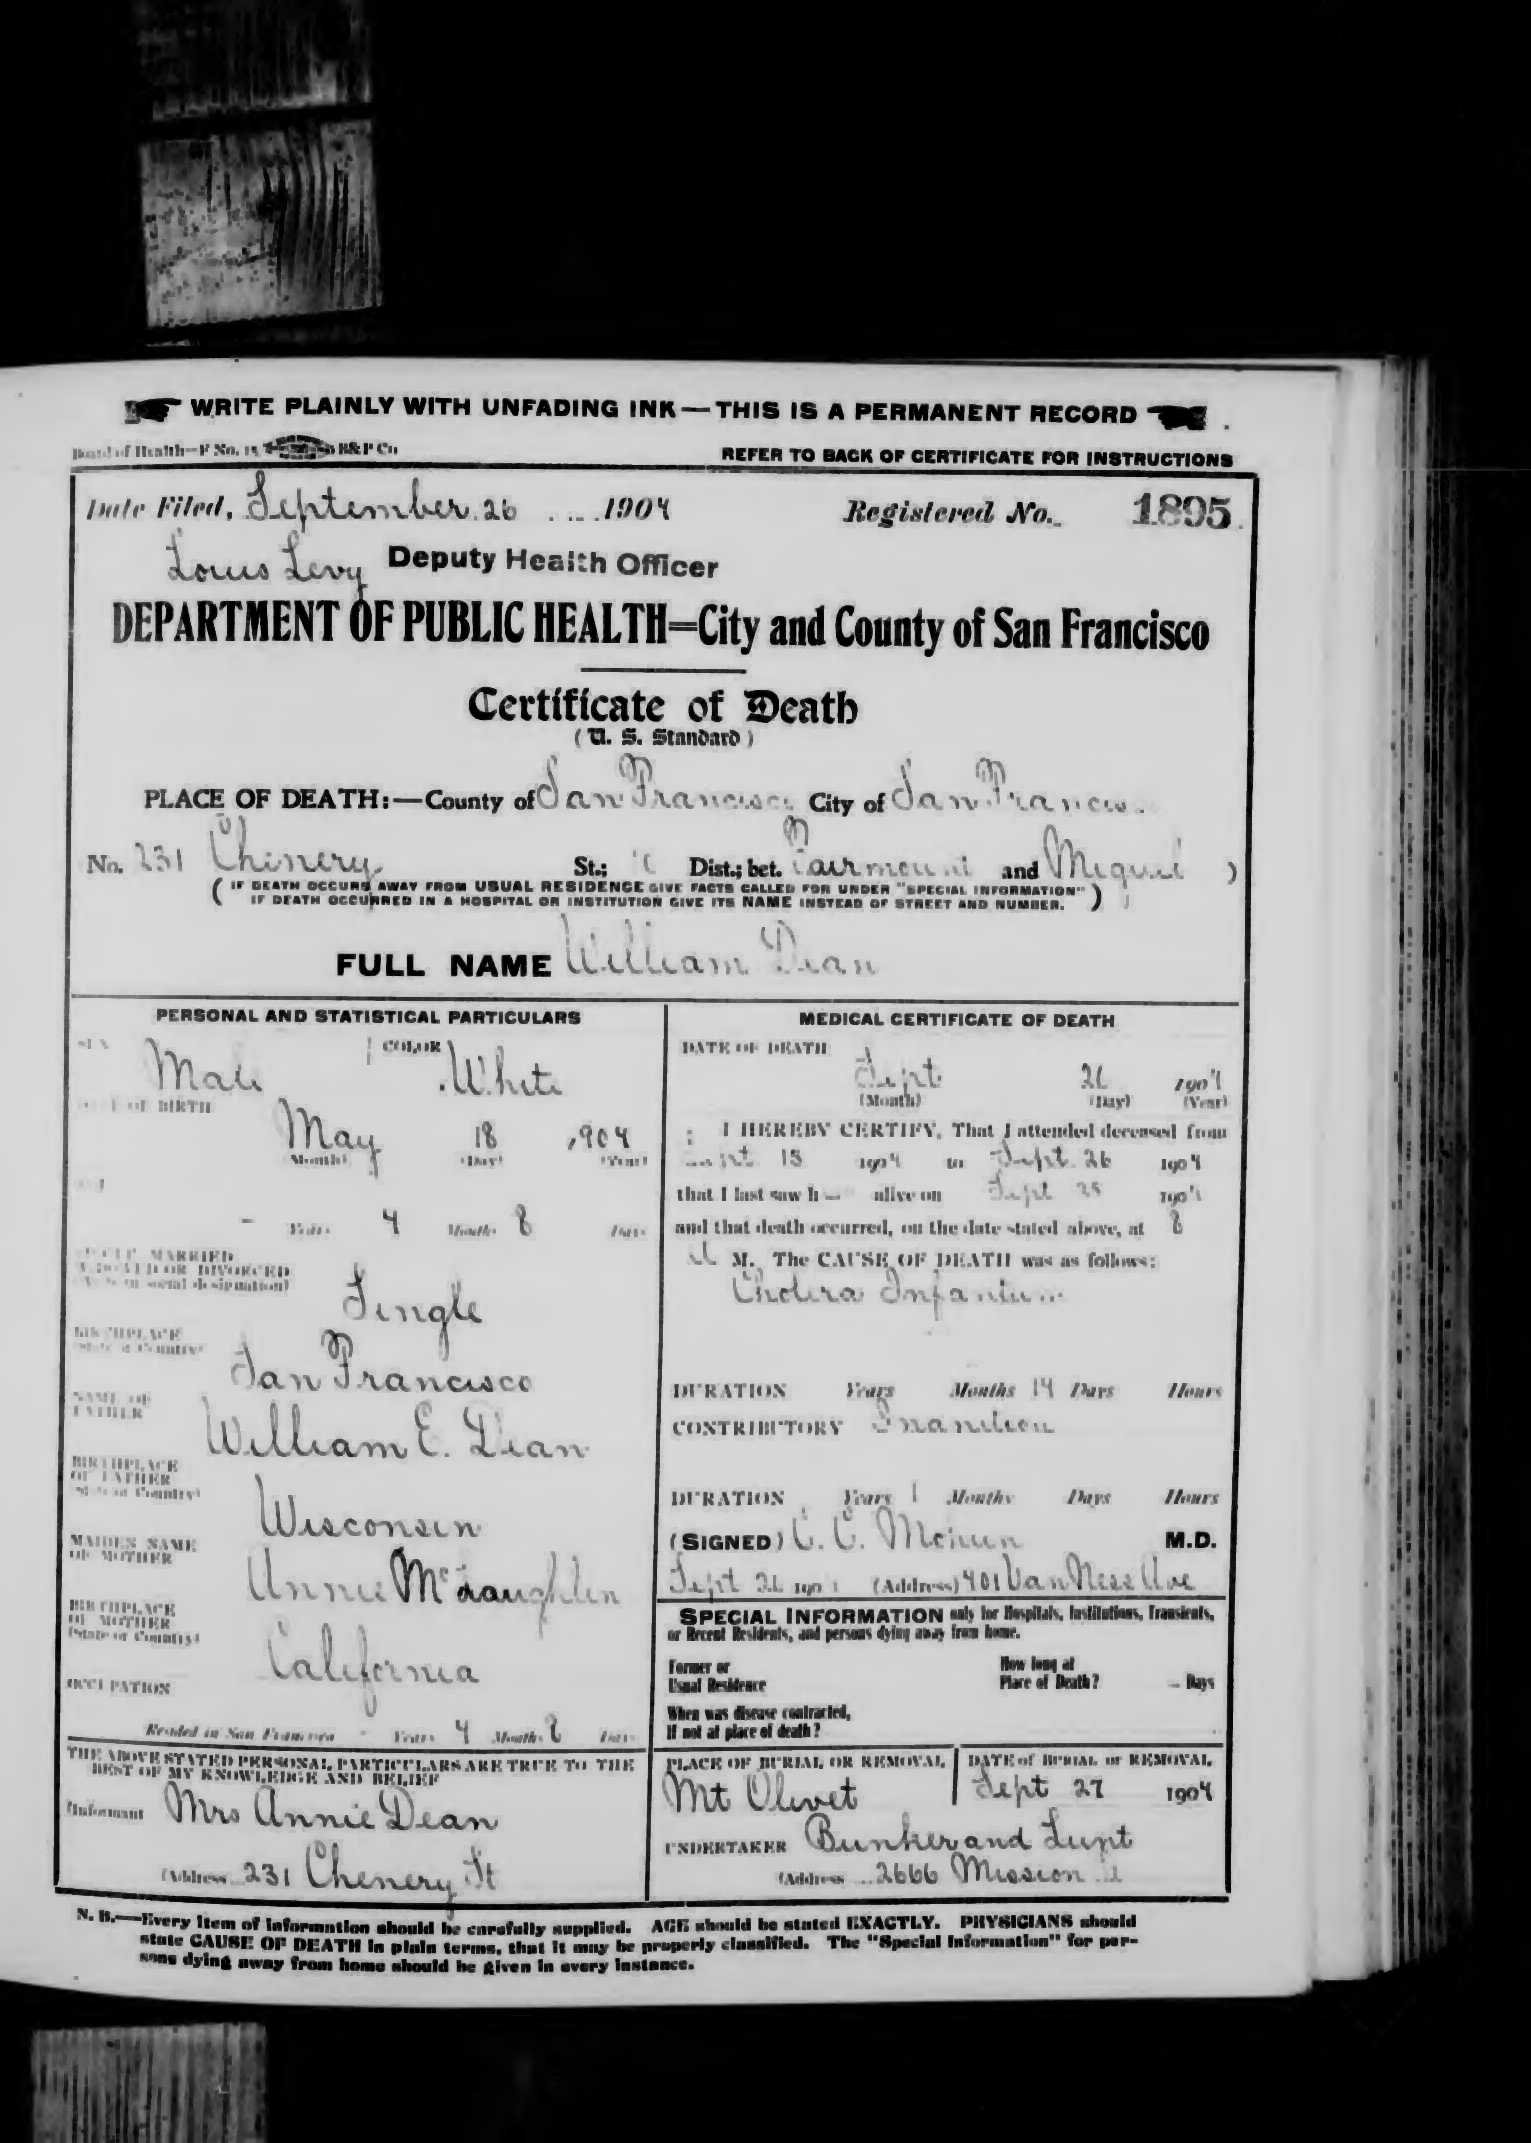 WRITE PLAINLY WITH UNFADING INK—THIS IS A PERMANENT RECORD
Board of Health—F No. 15 B&P Co
REFER TO BACK OF CERTIFICATE FOR INSTRUCTIONS
Date Filed, September 26 1904 Registered No. 1895
Louis Levy Deputy Health Officer
DEPARTMENT OF PUBLIC HEALTH=City and County of San Francisco
Certificate of Death
(U. S. Standard)
PLACE OF DEATH:—County of San Francisco City of San Francis
No. 231 Chinery St.; Dist.; bet. Fairmount and Miguel )
( IF DEATH OCCURS AWAY FROM USUAL RESIDENCE GIVE FACTS CALLED FOR UNDER "SPECIAL INFORMATION"
IF DEATH OCCURRED IN A HOSPITAL OR INSTITUTION GIVE ITS NAME INSTEAD OF STREET AND NUMBER. )
FULL NAME William Dean
PERSONAL AND STATISTICAL PARTICULARS
SEX Male COLOR White
DATE OF BIRTH
May 18 1904
(Month) (Day) (Year)
- Years 4 Months 8 Days
SINGLE, MARRIED
WIDOWED OR DIVORCED
(Write in social designation)
Single
BIRTHPLACE
(State or Country)
San Francisco
NAME OF
FATHER
William E. Dean
BIRTHPLACE
OF FATHER
(State or Country)
Wisconsin
MAIDEN NAME
OF MOTHER
Annie McLaughlin
BIRTHPLACE
OF MOTHER
(State or Country)
California
OCCUPATION
Resided in San Francisco - Years 4 Months 8 Days
THE ABOVE STATED PERSONAL PARTICULARS ARE TRUE TO THE
BEST OF MY KNOWLEDGE AND BELIEF
(Informant Mrs Annie Dean
(Address 231 Chenery St
MEDICAL CERTIFICATE OF DEATH
DATE OF DEATH
Sept 26 1904
(Month) (Day) (Year)
I HEREBY CERTIFY, That I attended deceased from
Sept 15 1904 to Sept 26 1904
that I last saw h— alive on Sept 25 1904
and that death occurred, on the date stated above, at 8
M. The CAUSE OF DEATH was as follows:
Cholera Infantum
DURATION Years Months 14 Days Hours
CONTRIBUTORY Inanition
DURATION Years 1 Months Days Hours
(SIGNED) C. C. M.D.
Sept 26 1904 (Address) 401 Van Ness Ave
SPECIAL INFORMATION only for Hospitals, Institutions, Transients,
or Recent Residents, and persons dying away from home.
Former or
Usual Residence
How long at
Place of Death? Days
When was disease contracted,
If not at place of death?
PLACE OF BURIAL OR REMOVAL
Mt Olivet
DATE of BURIAL or REMOVAL
Sept 27 1904
UNDERTAKER Bunker and Lunt
(Address 2666 Mission St
N. B.—Every item of information should be carefully supplied. AGE should be stated EXACTLY. PHYSICIANS should
state CAUSE OF DEATH in plain terms, that it may be properly classified. The "Special Information" for per-
sons dying away from home should be given in every instance.